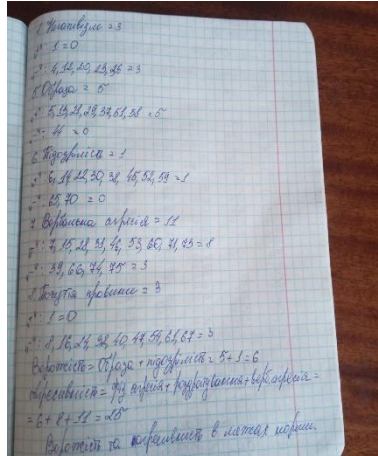 4. Негативізм = 3
"-": 1 = 0
"+": 4, 12, 20, 23, 36 = 3
5. Образа = 5
"+": 5, 13, 21, 29, 37, 51, 58 = 5
"-": 44 = 0
6. Підозрілість = 1
"+": 6, 14, 22, 30, 38, 45, 52, 59 = 1
"-": 65, 70 = 0
7. Вербальна агресія = 11
"+": 7, 15, 28, 31, 46, 53, 60, 71, 73 = 8
"-": 39, 66, 74, 75 = 3
8. Почуття провини = 3
"-": 1 = 0
"+": 8, 16, 24, 32, 40, 47, 54, 61, 67 = 3
Ворожість = Образа + підозрілість = 5 + 1 = 6
Агресивність = Фіз агресія + роздратування + верб. агресія =
= 6 + 8 + 11 = 25
Ворожість та агресивність в межах норми.